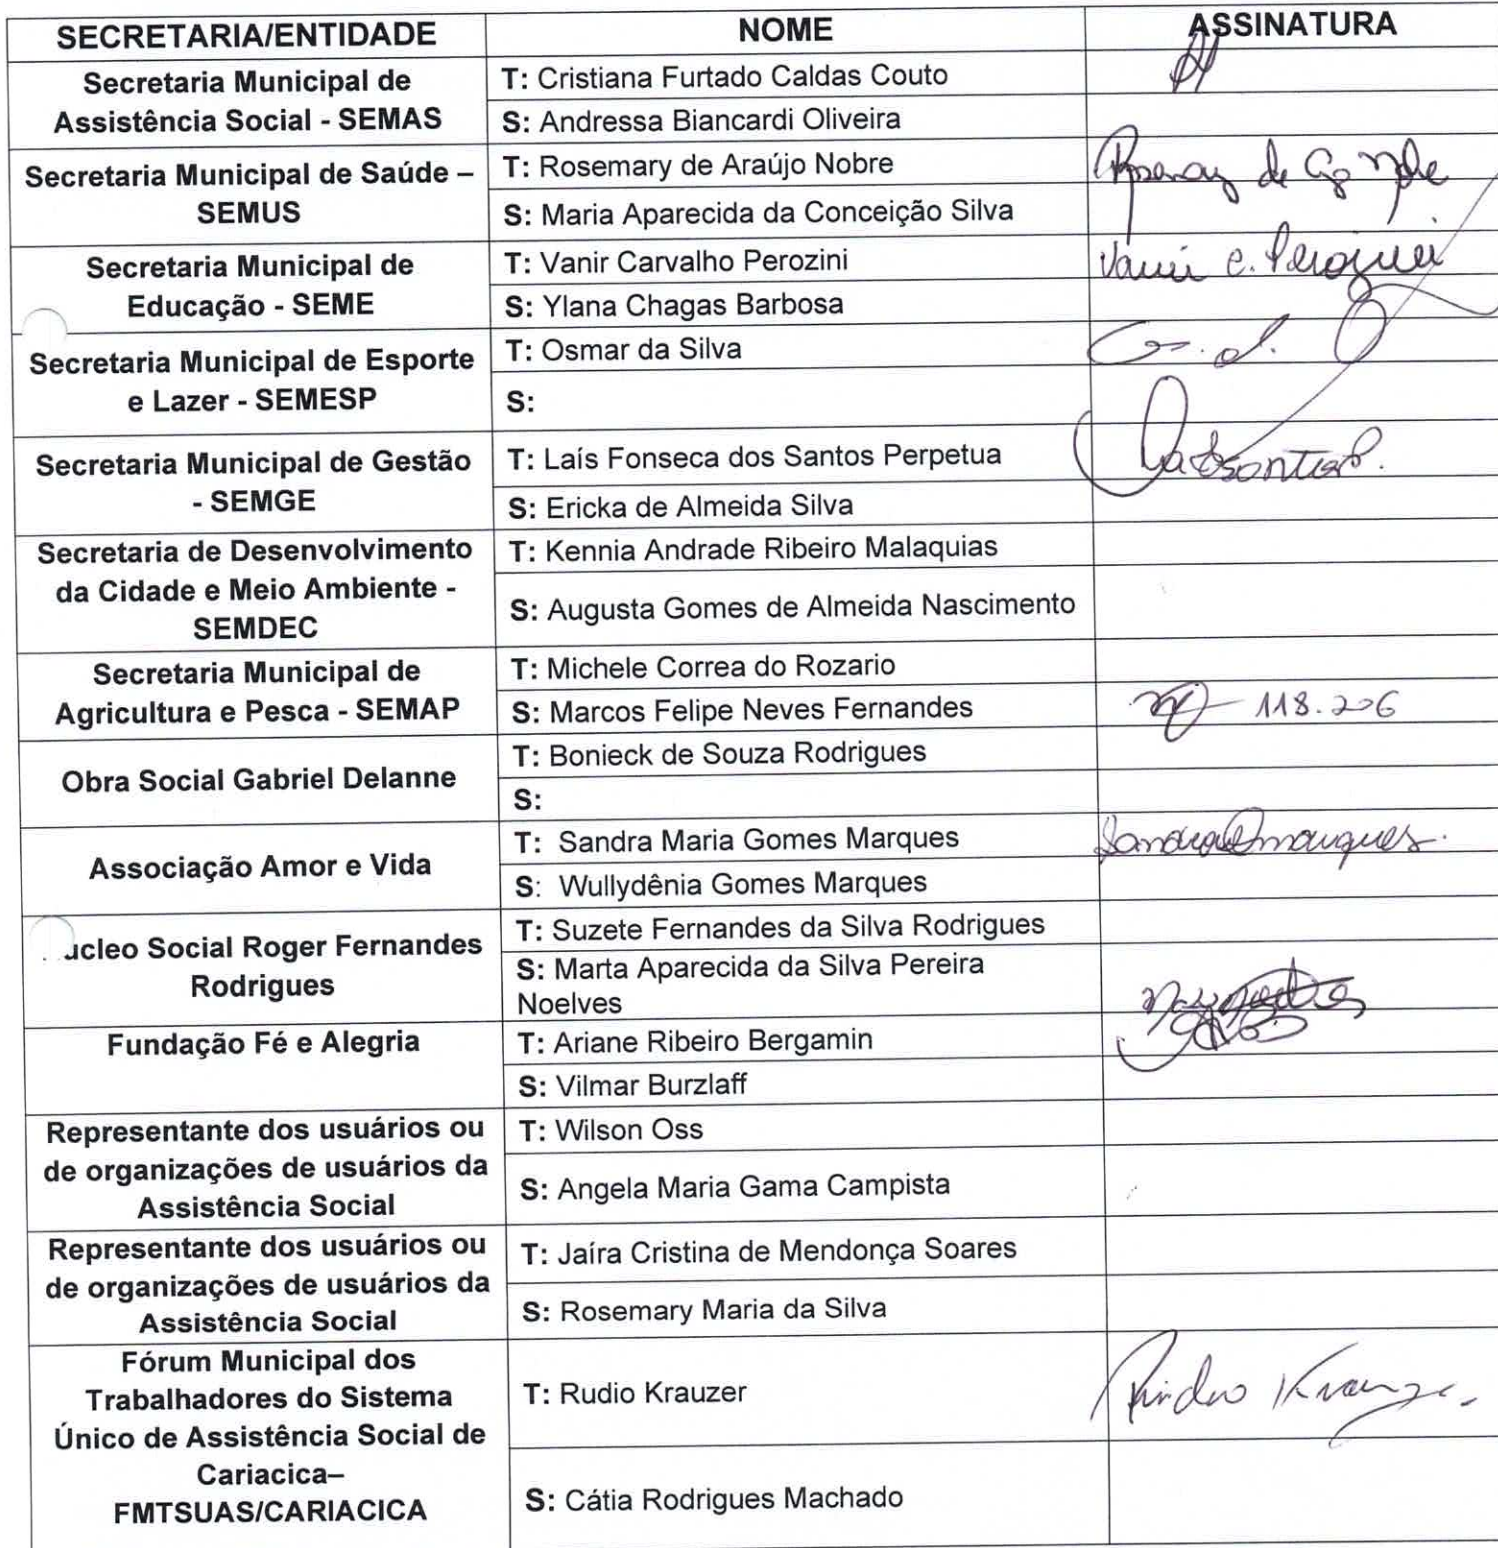 SECRETARIA/ENTIDADE NOME ASSINATURA
Secretaria Municipal de
Assistência Social - SEMAS
T: Cristiana Furtado Caldas Couto
S: Andressa Biancardi Oliveira
Secretaria Municipal de Saúde –
SEMUS
T: Rosemary de Araújo Nobre
S: Maria Aparecida da Conceição Silva
Secretaria Municipal de
Educação - SEME
T: Vanir Carvalho Perozini
Vanir C. Perozini
S: Ylana Chagas Barbosa
Secretaria Municipal de Esporte
e Lazer - SEMESP
T: Osmar da Silva
S:
Secretaria Municipal de Gestão
- SEMGE
T: Laís Fonseca dos Santos Perpetua
S: Ericka de Almeida Silva
Secretaria de Desenvolvimento
da Cidade e Meio Ambiente -
SEMDEC
T: Kennia Andrade Ribeiro Malaquias
S: Augusta Gomes de Almeida Nascimento
Secretaria Municipal de
Agricultura e Pesca - SEMAP
T: Michele Correa do Rozario
S: Marcos Felipe Neves Fernandes
118.206
Obra Social Gabriel Delanne
T: Bonieck de Souza Rodrigues
S:
Associação Amor e Vida
T: Sandra Maria Gomes Marques
S: Wullydênia Gomes Marques
ucleo Social Roger Fernandes
Rodrigues
T: Suzete Fernandes da Silva Rodrigues
S: Marta Aparecida da Silva Pereira
Noelves
Fundação Fé e Alegria
T: Ariane Ribeiro Bergamin
S: Vilmar Burzlaff
Representante dos usuários ou
de organizações de usuários da
Assistência Social
T: Wilson Oss
S: Angela Maria Gama Campista
Representante dos usuários ou
de organizações de usuários da
Assistência Social
T: Jaíra Cristina de Mendonça Soares
S: Rosemary Maria da Silva
Fórum Municipal dos
Trabalhadores do Sistema
Único de Assistência Social de
Cariacica–
FMTSUAS/CARIACICA
T: Rudio Krauzer
S: Cátia Rodrigues Machado